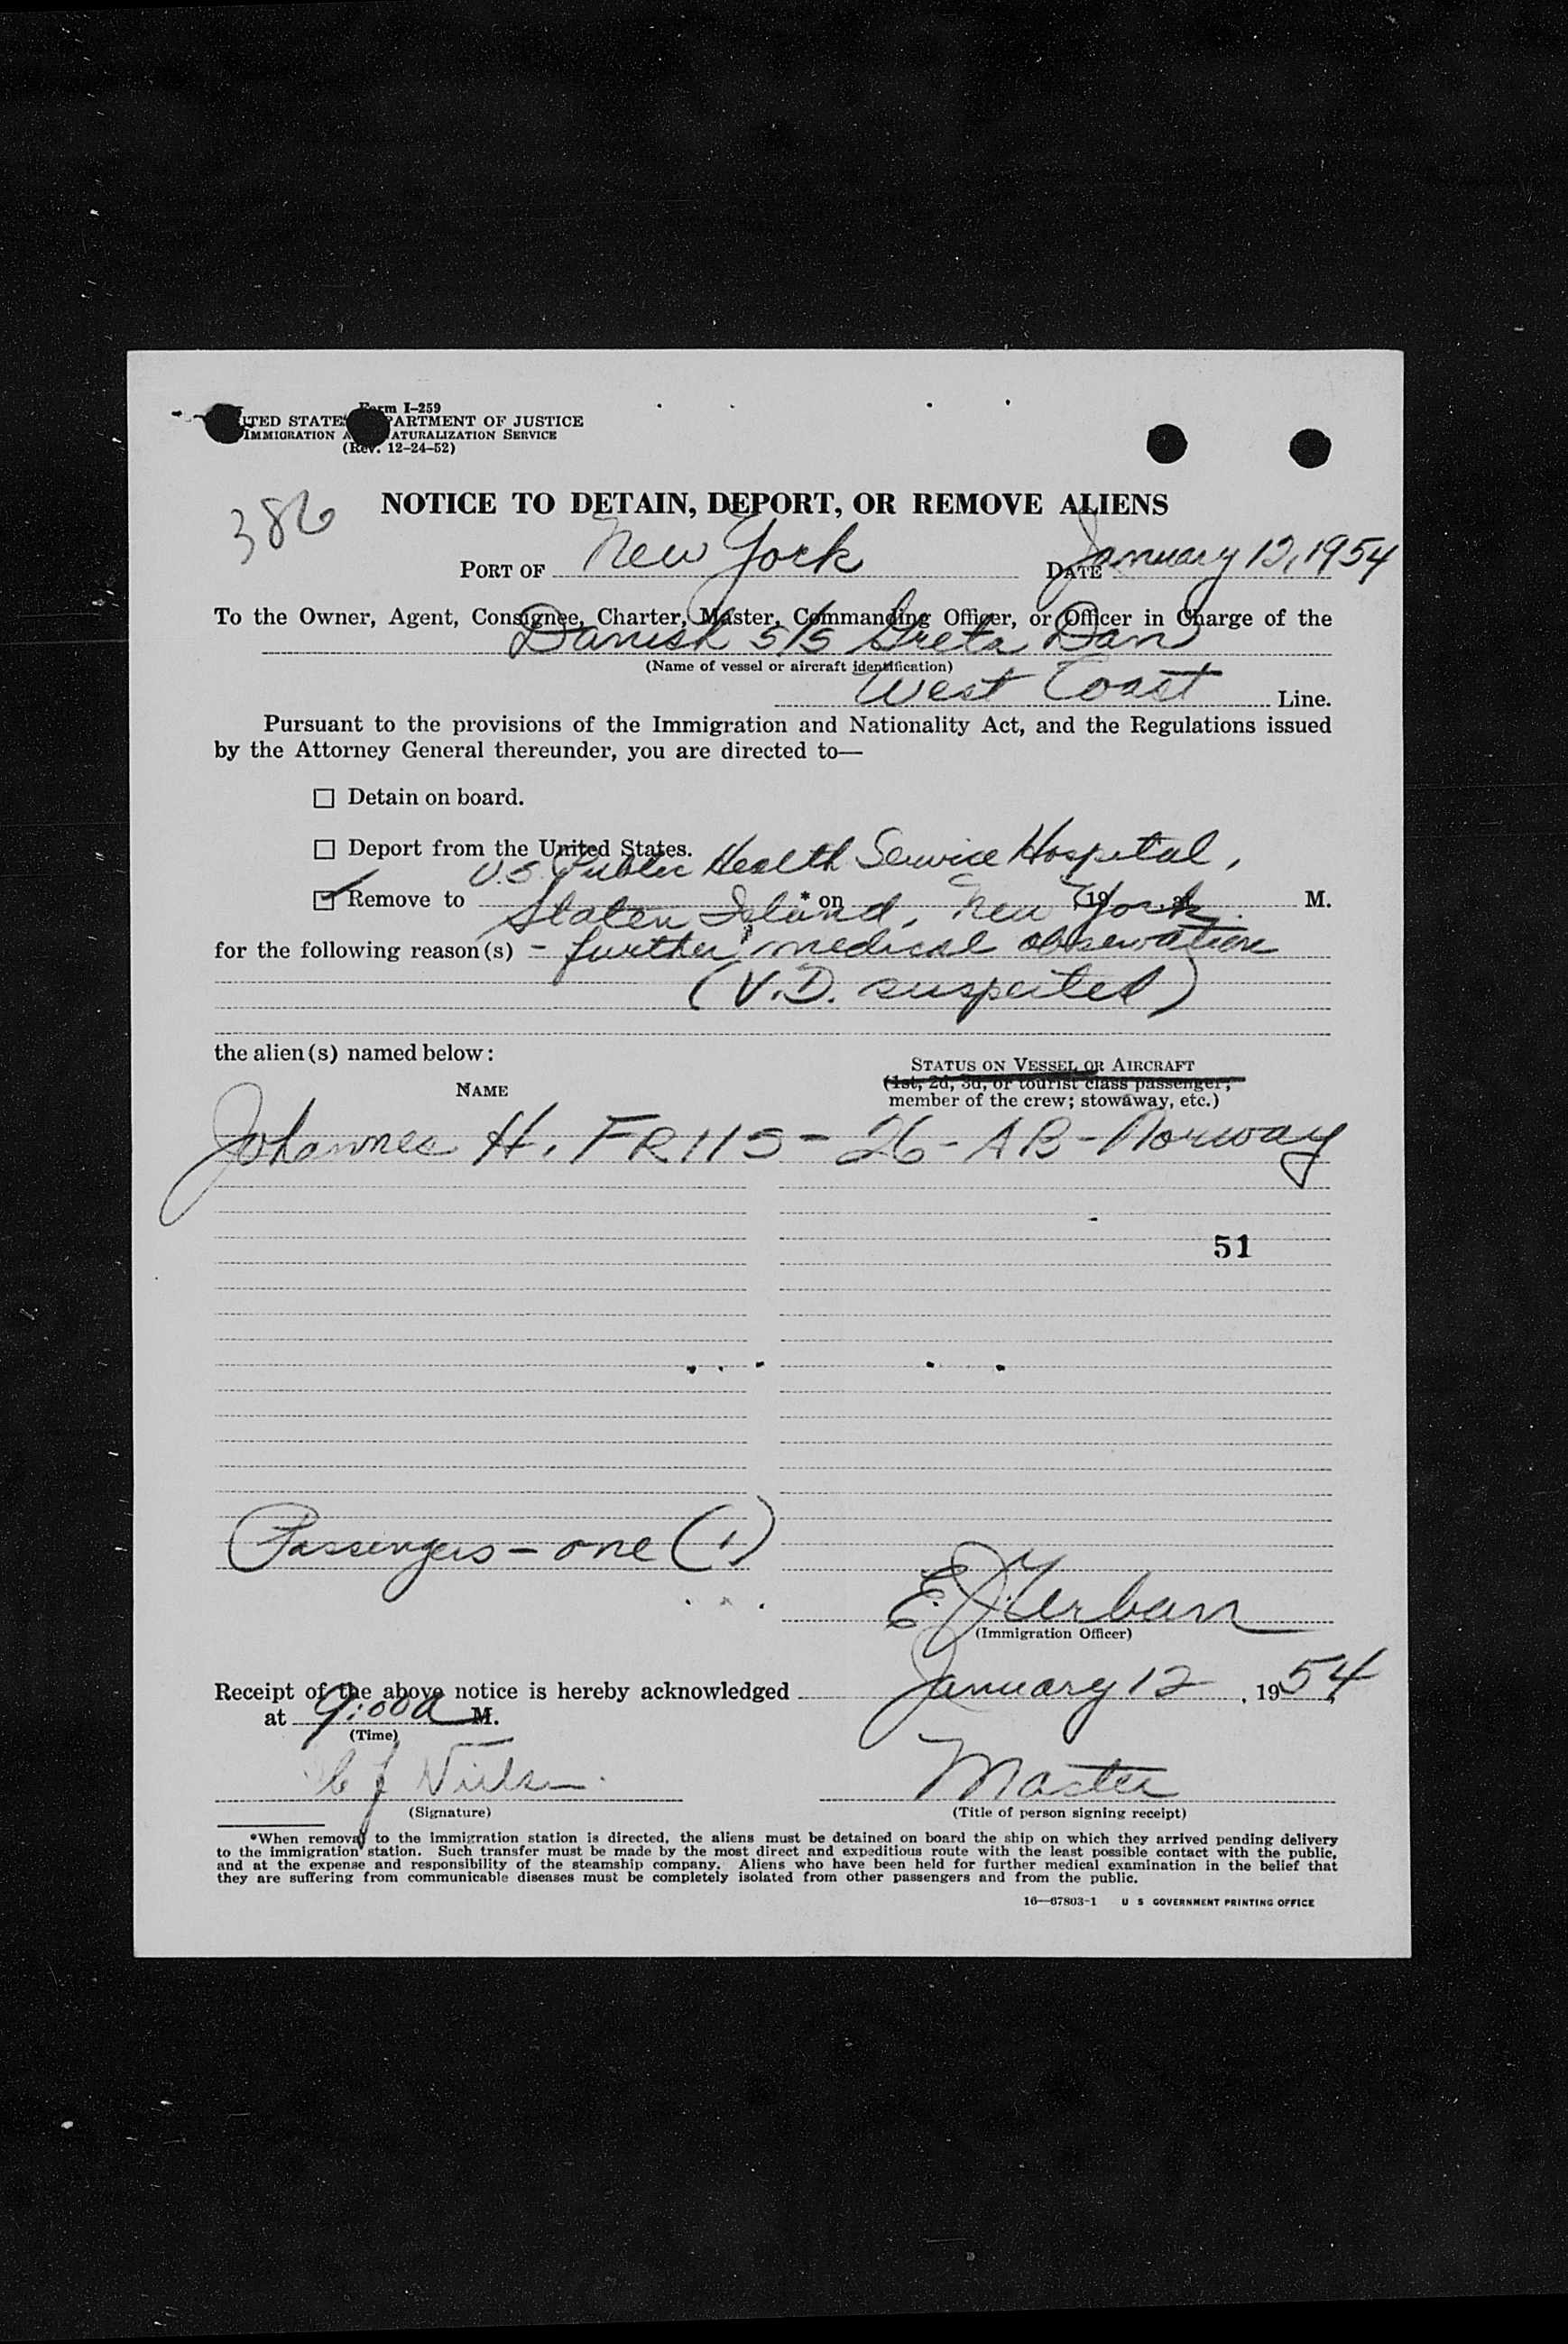 Form I-259
UNITED STATES DEPARTMENT OF JUSTICE
IMMIGRATION AND NATURALIZATION SERVICE
(Rev. 12-24-52)
386
NOTICE TO DETAIN, DEPORT, OR REMOVE ALIENS
PORT OF New York DATE January 12, 1954
To the Owner, Agent, Consignee, Charter, Master, Commanding Officer, or Officer in Charge of the
Danish S/S Greta Dan
(Name of vessel or aircraft identification)
West Coast Line.
Pursuant to the provisions of the Immigration and Nationality Act, and the Regulations issued
by the Attorney General thereunder, you are directed to—
☐ Detain on board.
☐ Deport from the United States.
U.S. Public Health Service Hospital,
☑ Remove to Staten Island, New York * on , 19 at M.
for the following reason(s) - further medical observation
(V.D. suspected)
the alien(s) named below:
NAME
STATUS ON VESSEL OR AIRCRAFT
(1st, 2d, 3d, or tourist class passenger;
member of the crew; stowaway, etc.)
Johannes H. FRIIS - 26 - AB - Norway
51
Passengers - one (1)
E. J. Urban
(Immigration Officer)
Receipt of the above notice is hereby acknowledged January 12, 1954
at 9:00 a M.
(Time)
Nielsen Master
(Signature) (Title of person signing receipt)
*When removal to the immigration station is directed, the aliens must be detained on board the ship on which they arrived pending delivery
to the immigration station. Such transfer must be made by the most direct and expeditious route with the least possible contact with the public,
and at the expense and responsibility of the steamship company. Aliens who have been held for further medical examination in the belief that
they are suffering from communicable diseases must be completely isolated from other passengers and from the public.
16—67803-1 U S GOVERNMENT PRINTING OFFICE